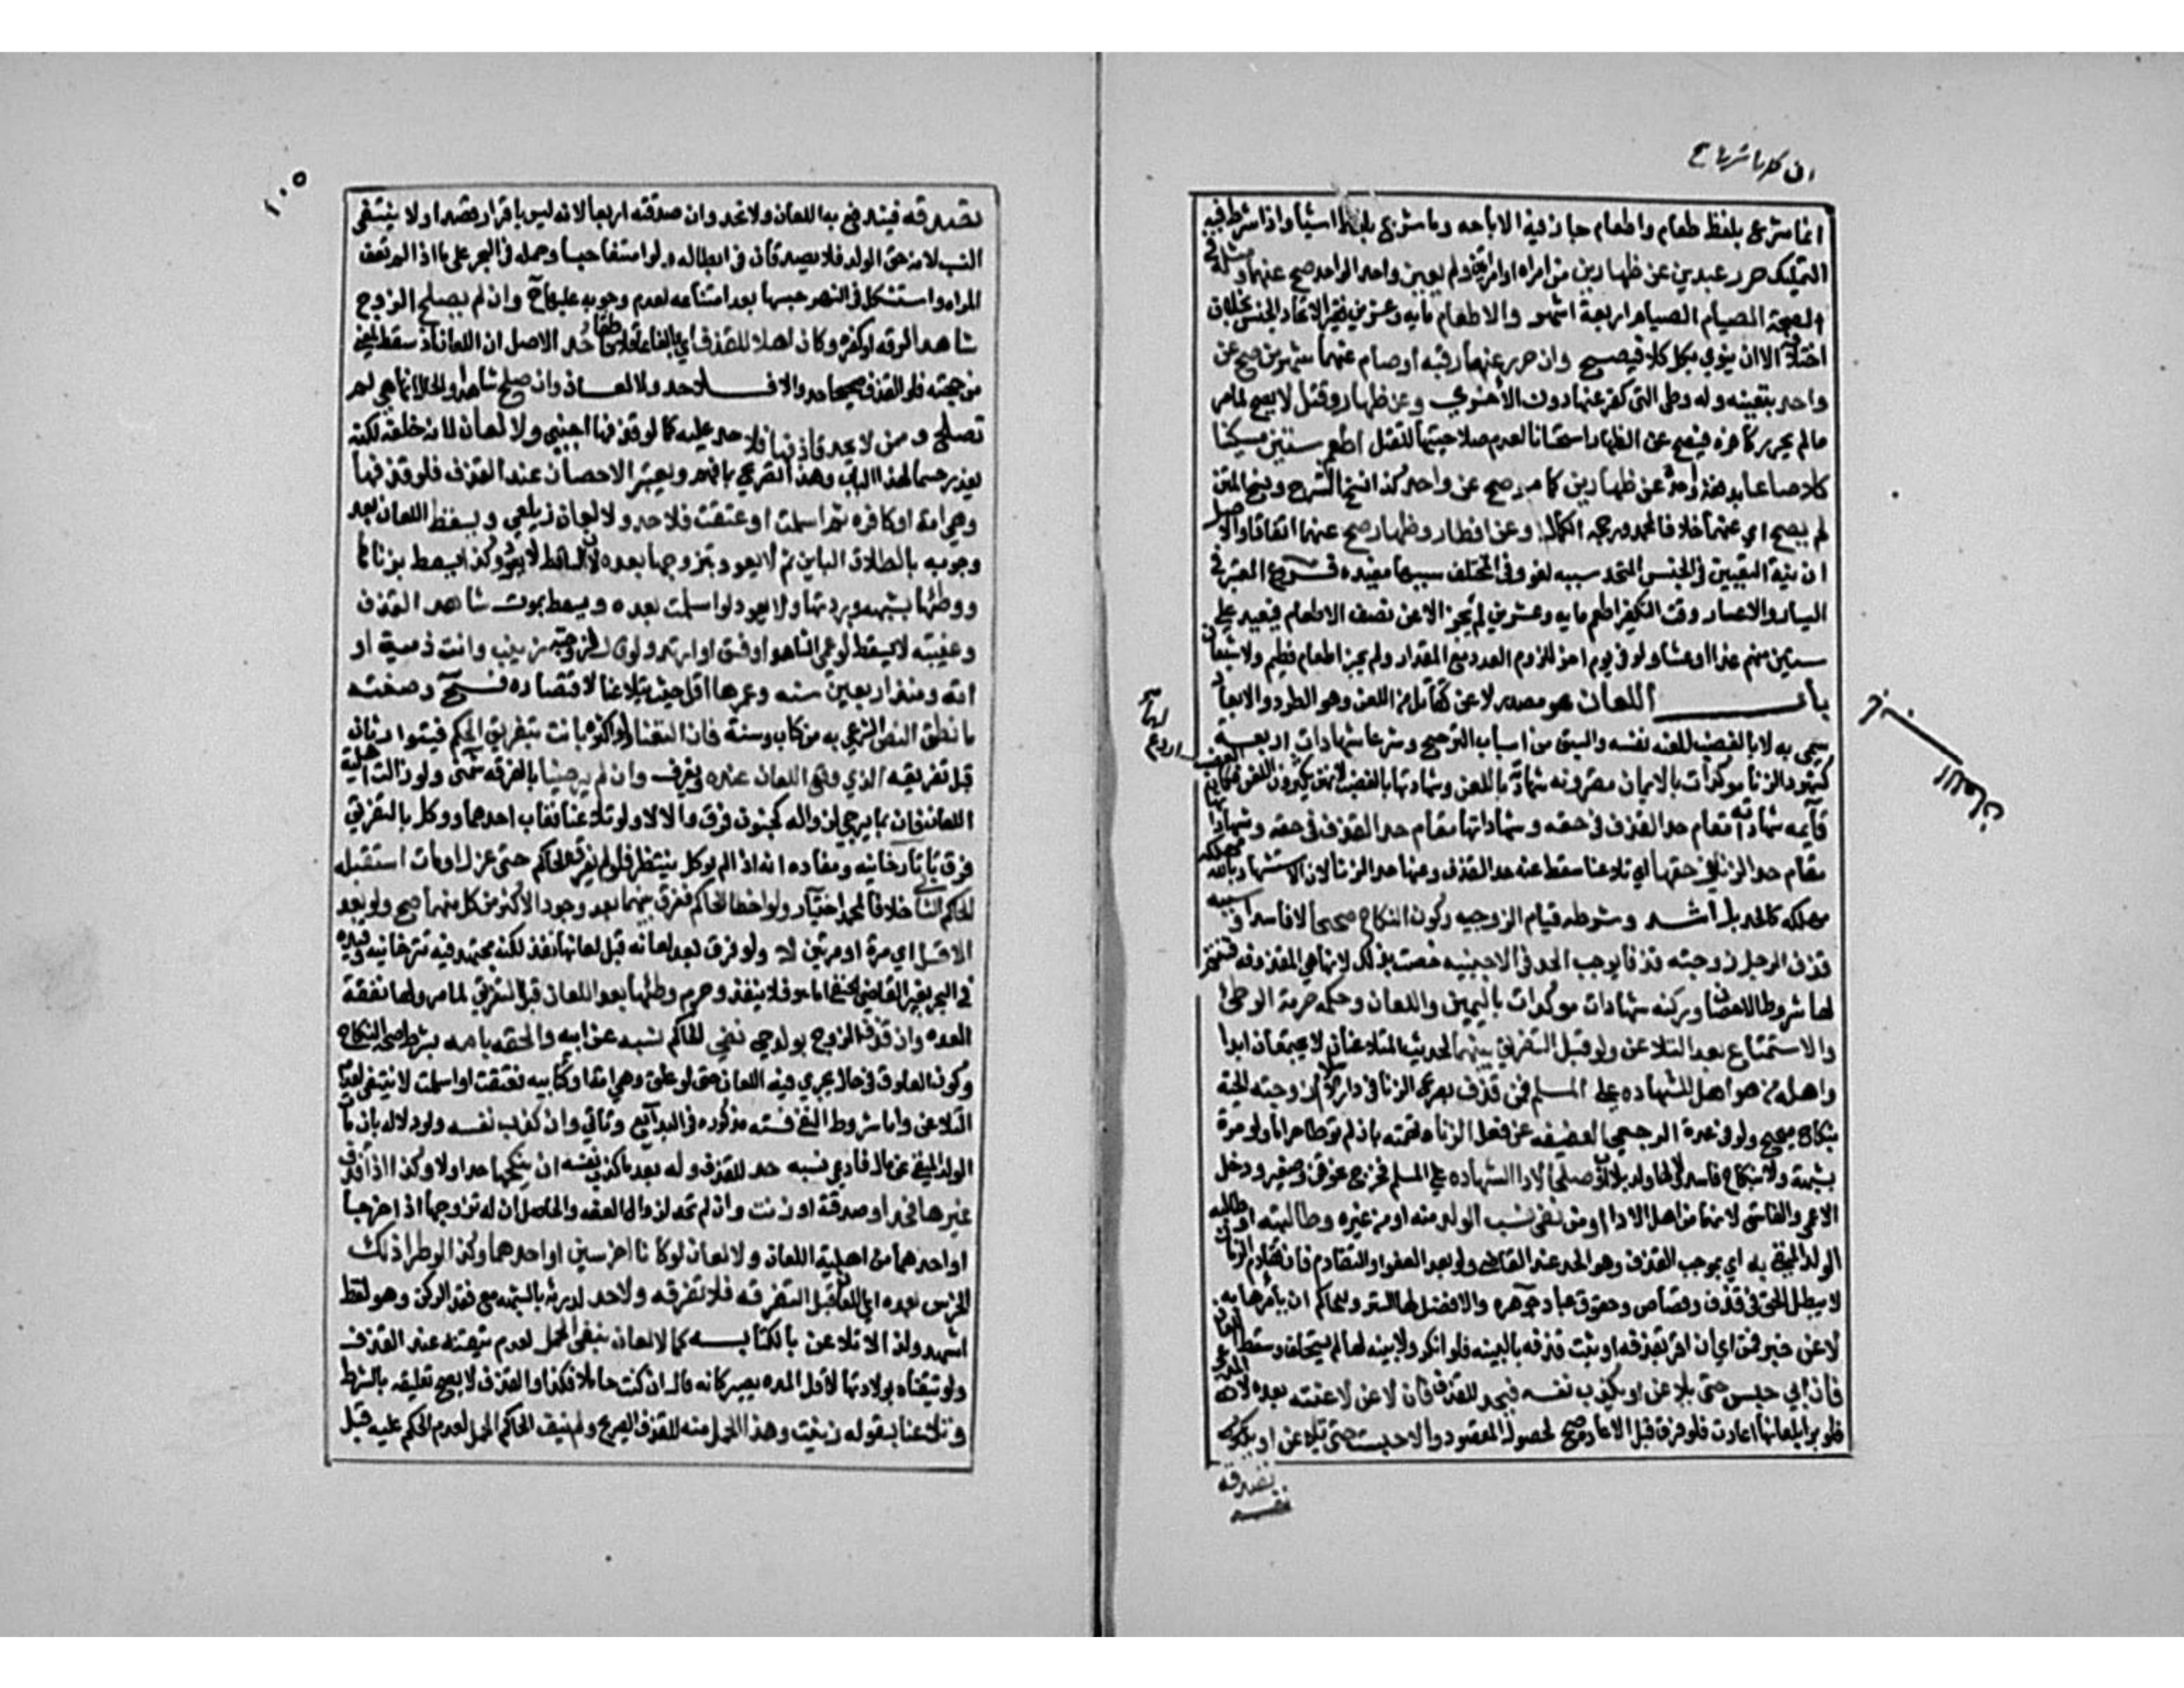 انما شرع بلفظ طعام واطعام جاز فيه الاباحه وما شرع بلفظ ايتا واذا شرط فيه
التمليك حرر عبدين عن ظهارين من امراه او امراتين ولم يعين واحدا لواحد صح عنهما ومثله في
الصحة الصيام اربعة اشهر والاطعام مايه وعشرين فقيرا لاتحاد الجنس بخلاف
اختلافه الا ان ينوي بكل كلا فيصح وان حرر عنهما رقبه او صام عنهما شهرين صح عن
واحد بتعينه وله وطى التى كفر عنها دون الاخرى وعن ظهار وقتل لا يصح لما مر
ما لم يحرر كافره فيصح عن الظهار استحسانا لعدم صلاحيتها للقتل اطعم ستين مسكينا
كلا صاعا بدفعة واحدة عن ظهارين كما مر صح عن واحد كذا نسخ الشرح ونسخ المتن
لم يصح اي عنهما خلافا لمحمد ورجحه الكمال وعن افطار وظهار صح عنهما اتفاقا والاصل
ان نية التعيين في الجنس المتحد سببه لغو وفي المختلف سببه مفيده فروع المعتبر في
اليسار والاعسار وقت التكفير اطعم مايه وعشرين لم يجز الا عن نصف الاطعام فيعيد على
ستين منهم غدا او عشا ولو في يوم اخر للزوم العدد مع المقدار ولم يجز اطعام فطيم ولا شبعان
باب اللعان هو مصدر لاعن كقاتل من اللعن وهو الطرد والابعاد
سمي به لا بالغضب للعنه نفسه والسبق من اسباب الترجيح وشرعا شهادات اربعة
كشهود الزنا موكدات بالايمان مقرونه شهادته باللعن وشهادتها بالغضب لانهن يكثرن اللعن فكان الغضب
قايمه شهاداته مقام حد القذف في حقه وشهاداتها
مقام حد الزنا في حقها اي اذا تلاعنا سقط عنه حد القذف وعنها حد الزنا لان الاستشهاد بالله
مهلك كالحد بل اشد وشرطه قيام الزوجيه وكون النكاح صحيحا لا فاسدا وسببه
قذف الرجل زوجته قذفا يوجب الحد في الاجنبيه خصت بذلك لانها هي المقذوفه فتتم
لها شروط الاحصان وركنه شهادات موكدات باليمين واللعان وحكمه حرمة الوطئ
والاستمتاع بعد التلاعن ولو قبل التفريق بينهما لحديث المتلاعنان لا يجتمعان ابدا
واهله من هو اهل للشهاده على المسلم فمن قذف بصريح الزنا في دار الاسلام زوجته الحية
بنكاح صحيح ولو في عدة الرجعي العفيفه عن فعل الزنا وتهمته بان لم توطا حراما ولو مرة
بشبهة ولا بنكاح فاسد ولا لها ولد بلا اب وصلحا لادا الشهاده على المسلم فخرج نحو قن وصغير ودخل
الاعمى والفاسق لانهما من اهل الادا او من نفى نسب الولد منه او من غيره وطالبته او طالبه
الولد المنفي به اي بموجب القذف وهو الحد عند القاضي ولو بعد العفو او التقادم فان تقادم الزمان
لا يبطل الحق في قذف وقصاص وحقوق عباد جوهره والافضل لها الستر وللحاكم ان يامرها به
لاعن خبر فمن اي ان اقر بقذفه او ثبت قذفه بالبينه فلو انكر ولا بينه لها لم يستحلف وسقط اللعان
فان ابى حبس حتى يلاعن او يكذب نفسه فيحد للقذف فان لاعن لاعنته بعده لانه المدعي
فلو بدا بلعانها اعادت فلو فرق قبل الاعاده صح لحصول المقصود والا حبست حتى تلاعن او
تصدقه
١٠٥
تصدقه فيندفع به اللعان ولا تحد وان صدقته اربعا لانه ليس باقرار قصدا ولا ينتفي
النسب لانه حق الولد فلا يصدقان في ابطاله ولو امتنعا حبسا وحمله في البحر على ما اذا لم تعف
المراه واستشكل في النهر حبسها بعد امتناعه لعدم وجوبه عليها ح وان لم يصلح الزوج
شاهدا لرقه او كفره وكان اهلا للقذف اي بالغا عاقلا ناطقا حد الاصل ان اللعان اذا سقط لمعنى
من جهته فلو القذف صحيحا حد والا فلا حد ولا لعان وان صلح شاهدا والحال انها هي لم
تصلح وممن لا يحد قاذفها فلا حد عليه كما لو قذفها اجنبي ولا لعان لانه خلفه لكنه
يعزر حسما لهذا الباب وهذا تصريح بما فهم ويعتبر الاحصان عند القذف فلو قذفها
وهي امة او كافره ثم اسلمت او عتقت فلا حد ولا لعان زيلعي ويسقط اللعان بعد
وجوبه بالطلاق الباين ثم لا يعود بتزوجها بعده لان الساقط لا يعود وكذا يسقط بزناها
ووطئها بشبهه وبردتها ولا يعود لو اسلمت بعده ويسقط بموت شاهد القذف
وغيبته لا يسقط لو عمي الشاهد او فسق او ارتد ولو قال لزوجته زنيت وانت ذمية او
امة ومنذ اربعين سنه وعمرها اقل حيث يتلاعنا لاقتصاره فتح وصفته
ما نطق النص الشرعي به من كتاب وسنة فان التعنا ولو اكثره بانت بتفريق الحاكم فيتوارثان
قبل تفريقه الذي وقع اللعان عنده ويفرق وان لم يرضيا بالفرقه شمني ولو زالت اهلية
اللعان فان بما يرجى زواله كجنون فرق والا لا ولو تلاعنا فغاب احدهما ووكل بالتفريق
فرق تاتارخانيه ومفاده انه اذا لم يوكل ينتظر فلو لم يفرق الحاكم حتى عزل او مات استقبله
الحاكم الثاني خلافا لمحمد اختيار ولو اخطا الحاكم ففرق بينهما بعد وجود الاكثر من كل منهما صح ولو بعد
الاقل اي مرة او مرتين لا ولو فرق بعد لعانه قبل لعانها نفذ لكنه مجتهد فيه تترخانيه وقيده
في البحر بغير القاضي الحنفي اما هو فلا ينفذ وحرم وطئها بعد اللعان قبل التفريق لما مر ولها نفقة
العده وان قذف الزوج بولد حي نفى الحاكم نسبه عن ابيه والحقه بامه بشرط صحة النكاح
وكون العلوق في حال يجري فيه اللعان حتى لو علق وهي امة او كتابيه فعتقت او اسلمت لا ينتفي لعدم
التلاعن واما شروط النفي فسته مذكوره في البدايع وتاتي وان كذب نفسه ولو دلاله بان مات
الولد المنفي عن مال فادعى نسبه حد للقذف وله بعد ما كذب نفسه ان ينكحها حد اولا وكذا اذا قذف
غيرها فحد او صدقته او زنت وان لم تحد لزوال العفه والحاصل ان له تزوجها اذا خرجا
او احدهما من اهلية اللعان ولا لعان لو كانا اخرسين او احدهما وكذا لو طرا ذلك
الخرس بعده اي اللعان قبل التفرقه فلا تفرقه ولا حد لدرئه بالشبهه مع فقد الركن وهو لفظ
اشهد ولذا لا تلاعن بالكتابه كما لا لعان بنفي الحمل لعدم تيقنه عند القذف
ولو تيقناه بولادتها لاقل المده يصير كانه قال ان كنت حاملا فكذا والقذف لا يصح تعليقه بالشرط
وتلاعنا بقوله زنيت وهذا الحمل منه للقذف الصريح ولم ينف الحاكم الحمل لعدم الحكم عليه قبل